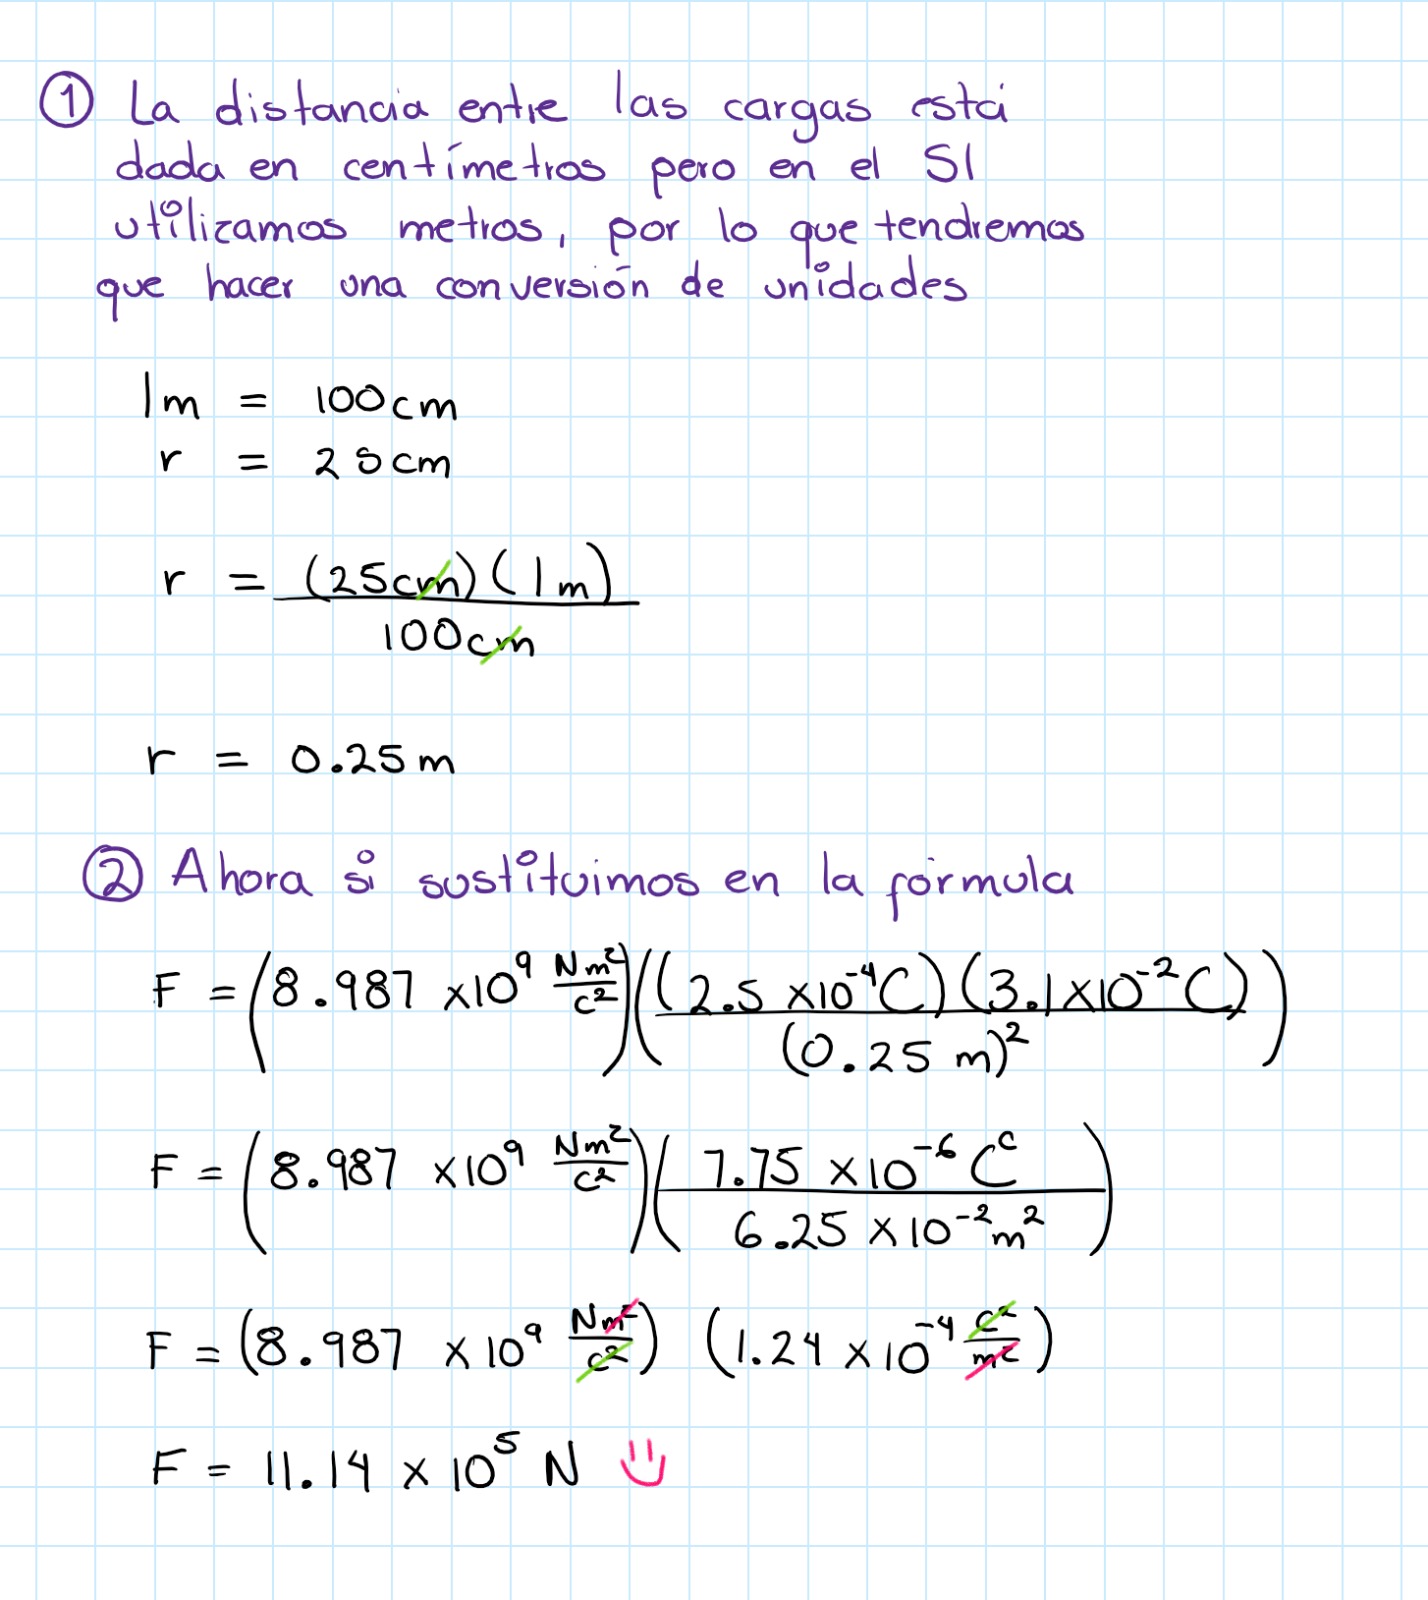 ① La distancia entre las cargas está
dada en centímetros pero en el SI
utilizamos metros, por lo que tendremos
que hacer una conversión de unidades
1m = 100cm
r = 25cm
r = (25cm)(1m)
100cm
r = 0.25m
② Ahora si sustituimos en la fórmula
F = (8.987 ×10⁹ Nm²/C²)((2.5 ×10⁻⁴C)(3.1×10⁻²C)/(0.25 m)²)
F = (8.987 ×10⁹ Nm²/C²)(7.75 ×10⁻⁶ Cᶜ/6.25 ×10⁻²m²)
F = (8.987 ×10⁹ Nm²/C²) (1.24 ×10⁻⁴ C²/m²)
F = 11.14 × 10⁵ N